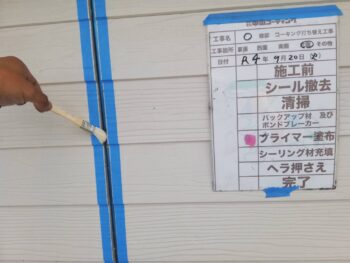 工事名 〇〇様邸 コーキング打ち替え工事
工事箇所 屋根 外壁 その他
日付 R4年9月20日(火)
施工前
シール撤去
清掃
バックアップ材 及び
ボンドブレーカー
プライマー塗布
シーリング材充填
ヘラ押さえ
完了